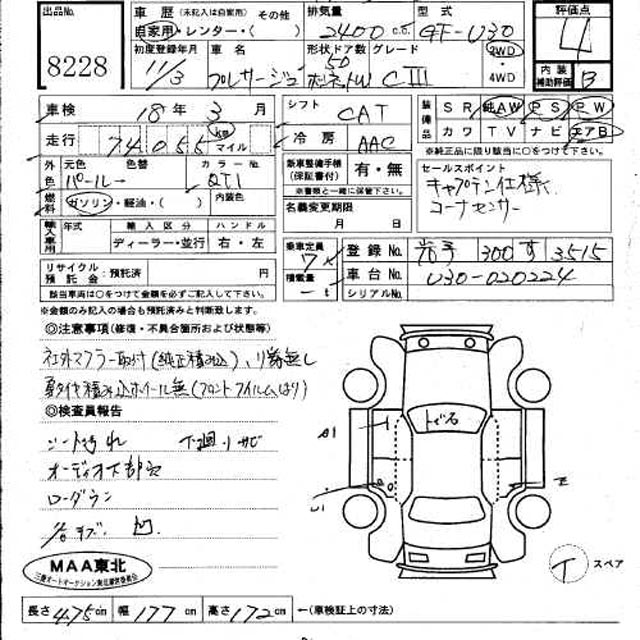 出品番号
8228
車歴 (未記入は自家用) その他
自家用・レンター・( )
排気量
2400 c.c.
型式
GF-U30
評価点
4
初度登録年月
11/3
車名
プレサージュ
形状 ドア数 グレード
5D
ボンネットW CⅢ
2WD
・
4WD
内装
補助評価
B
車検 18年 3月
走行 74055 km マイル
シフト CAT
冷房 AAC
装備品 SR 純AW PS PW
カワ TV ナビ エアB
※純正品に限り該当に○をつけて下さい。
外色 元色 色替 カラーNo.
パール QT1
燃料 ガソリン・軽油・( ) 内装色
新車整備手帳
(保証書付) 有・無
※書類と一緒に保管下さい。
セールスポイント
キャプテン仕様
コーナーセンサー
名義変更期限
月 日
輸入車用 年式 輸入区分 ハンドル
ディーラー・並行 右・左
乗車定員 7人
積載量 -t
登録No. 岩手 300 す 3515
車台No. U30-020224
シリアルNo.
リサイクル
預託金 :預託済 円
該当車両は○をつけて金額を必ずご記入して下さい。
※金額のみ記入の場合も預託済みと判断致します。
◎注意事項(修復・不具合箇所および状態等)
社外マフラー取付(純正積み込)、リ券無し
夏タイヤ積み込ホイール無(フロントフイルムはり)
◎検査員報告
シート汚れ 下廻りサビ
オーディオ下部欠
ローダウン
凹
トビ石
A1
U1
T スペア
MAA東北
三菱オートオークション東北運営委員会
長さ 475cm 幅 177cm 高さ 172cm ←(車検証上の寸法)